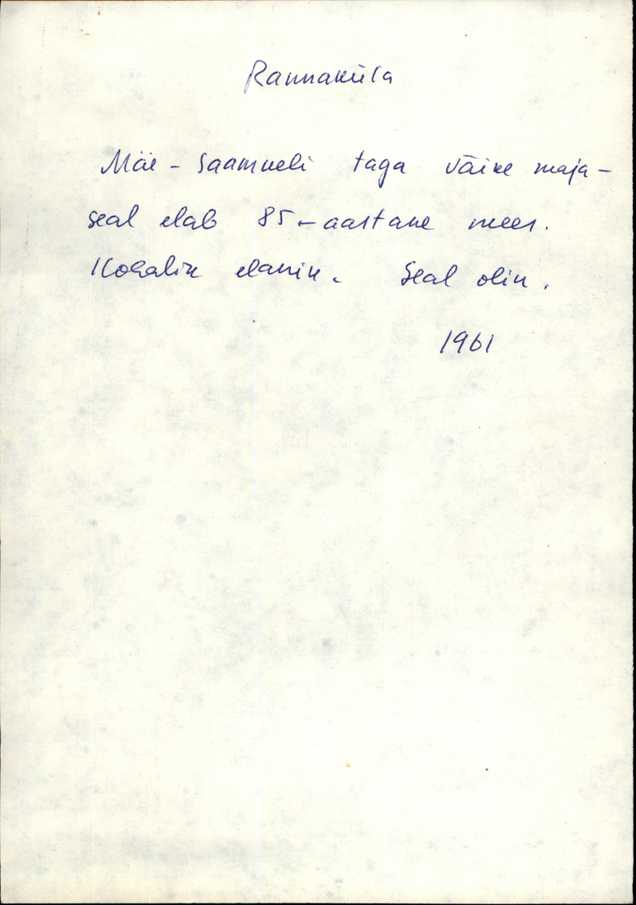 Rannaküla
Mäe-Saamueli taga väike maja-
seal elab 85-aastane mees.
Kohalik elanik. Seal olin.
1961